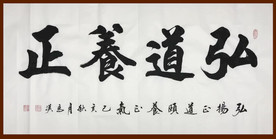 弘道養正
弘揚正道頤養正氣己亥秋月